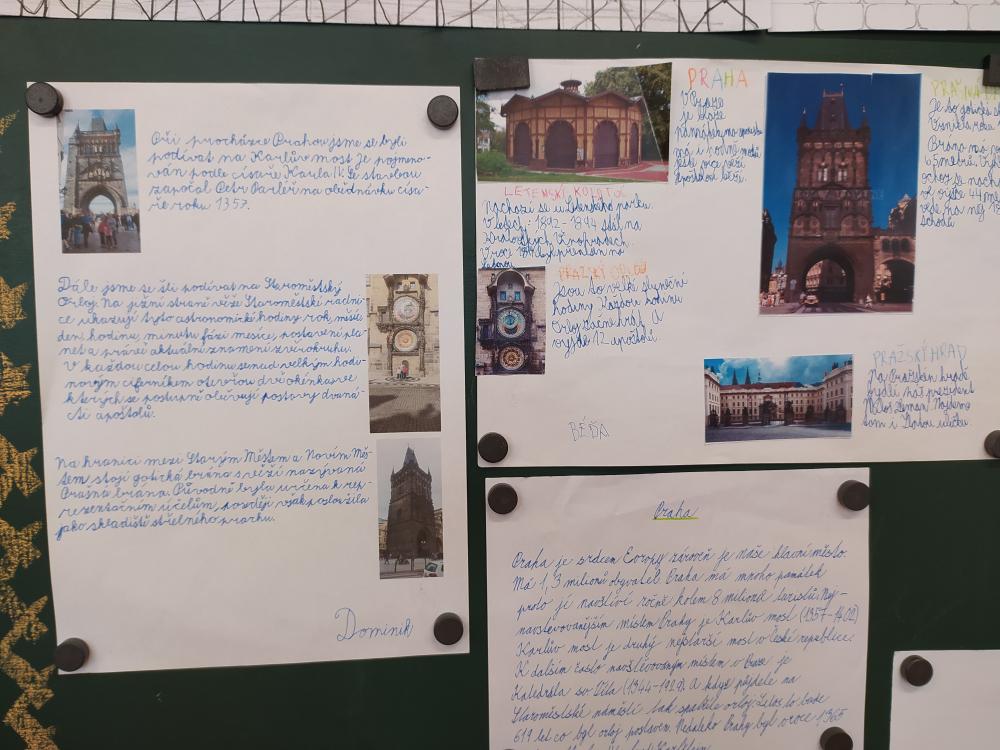 Při procházce Prahou jsme se byli
podívat na Karlův most. Je pojmeno-
ván podle císaře Karla IV. Se stavbou
započal Petr Parléř na objednávku císa-
ře roku 1357.
Dále jsme se šli podívat na Staroměstský
Orloj. Na jižní straně věže Staroměstské radni-
ce ukazují tyto astronomické hodiny rok, měsíc
den, hodinu, minutu, fázi měsíce, postavení pla-
net a právě aktuální znamení zvěrokruhu.
V každou celou hodinu se nad velkým hodi-
novým ciferníkem otevřou dvě okénka, ve
kterých se postupně objevují postavy dvaná-
cti apoštolů.
Na hranici mezi Starým Městem a Novým Měs-
tem stojí gotická brána s věží nazývaná
Prašná brána. Původně byla určena k rep-
rezentačním účelům, později však posloužila
jako skladiště střelného prachu.
Dominik
PRAHA
V Praze
je hodně
má i hodně mostů
LETENSKÝ KOLOTOČ
Nachází se v Letenském parku.
V letech 1892-1894 stál na
Královských Vinohradech.
V roce
PRAŽSKÝ ORLOJ
Jsou to velké sluneční
hodiny. Každou hodinu
Orloj začne hrát a
vyjde 12 apoštolů.
BÉĎA
PRAŠNÁ
Je to gotická
Brána má
65 metrů.
ve výšce 44 me
vede na něj
schodů
PRAŽSKÝ HRAD
Na Pražském hradě
bydlí náš prezident
Miloš Zeman. Najdeme
tam i Zlatou uličku.
Praha
Praha je srdcem Evropy zároveň je naše hlavní město.
Má 1,3 milionů obyvatel. Praha má mnoho památek
proto jí navštíví ročně kolem 8 milionů turistů. Nej-
navštěvovanějším místem Prahy je Karlův most (1357-1402)
Karlův most je druhý nejstarší most v České republice.
K dalším často navštěvovaným místem v Praze je
Katedrála sv. Víta (1344-1929). A když půjdete na
Staroměstské náměstí tak spatříte orloj. Letos to bude
619 let co byl orloj postaven. Nedaleko Prahy byl v roce 1365